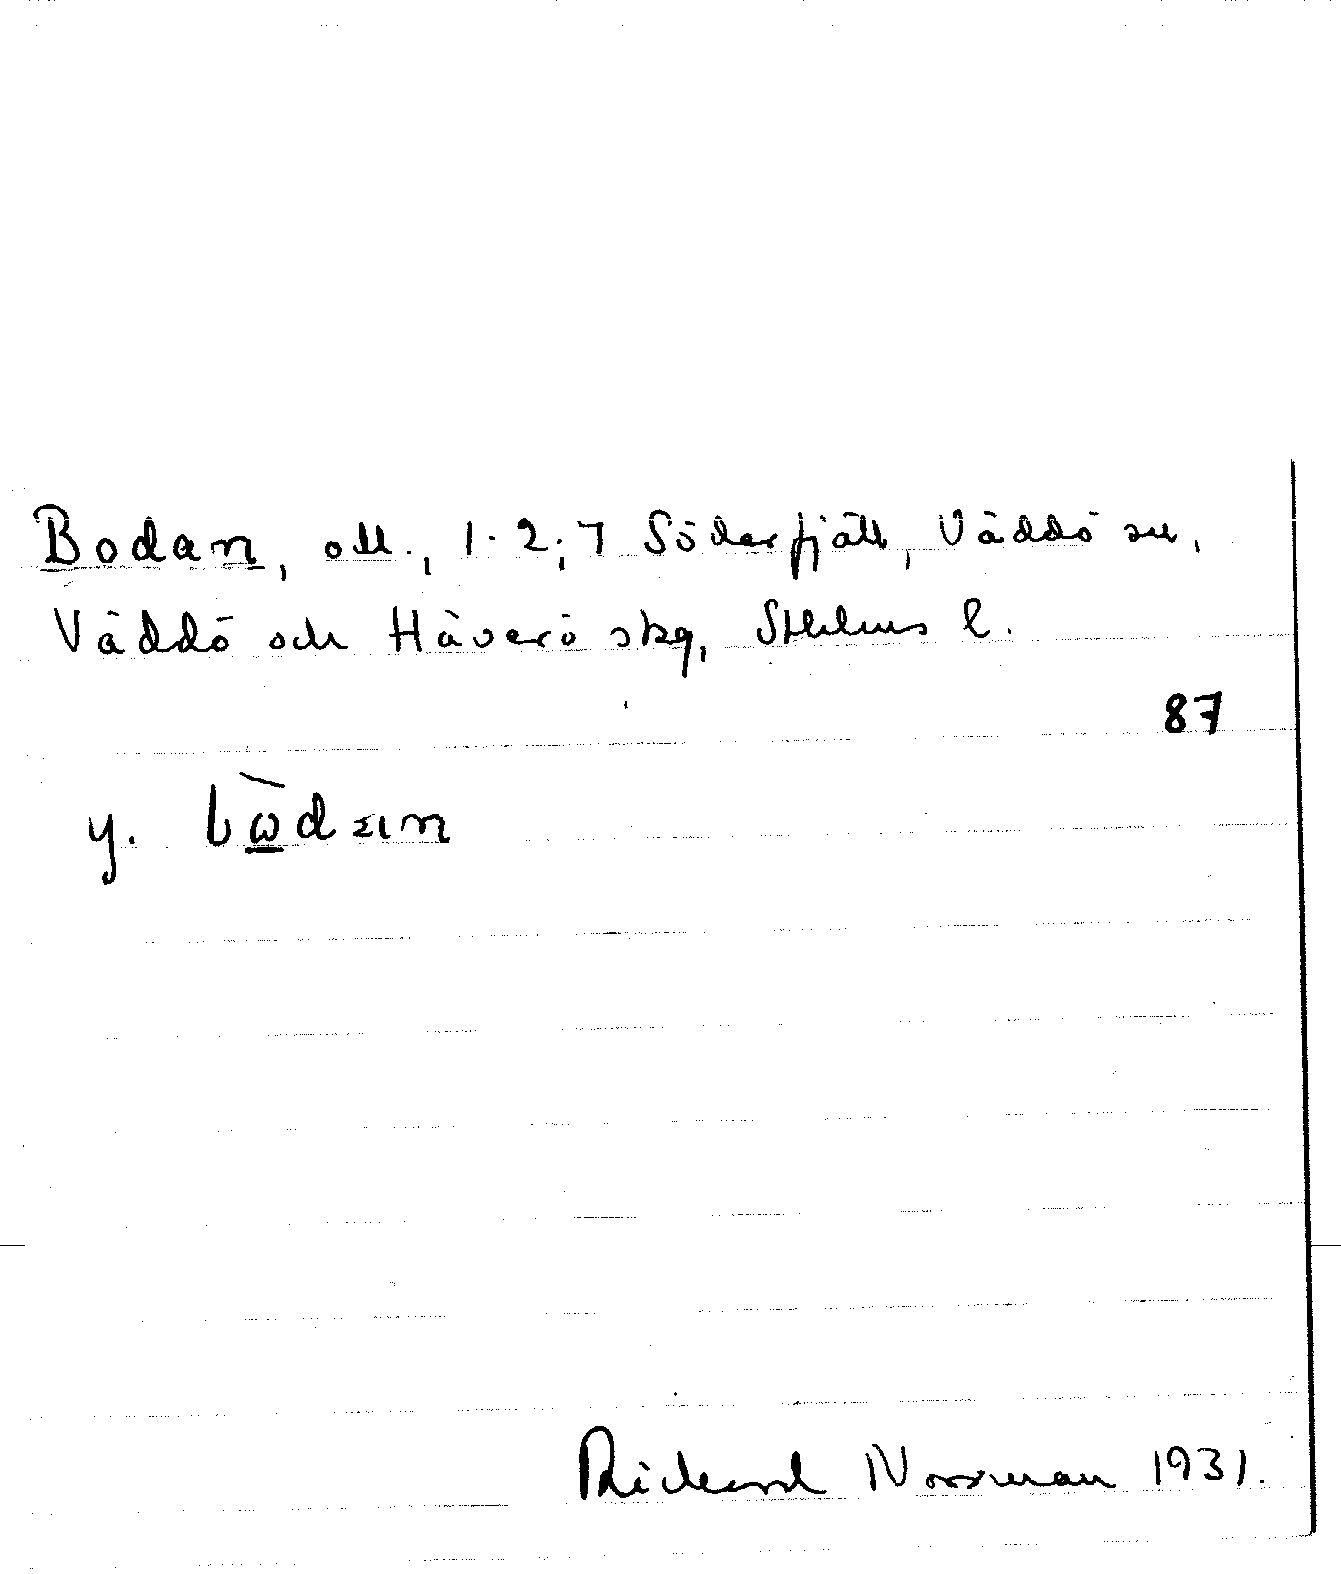 Bodan, ott., 1.2; 7 Söderfjäll, Väddö sn,
Väddö och Häverö skg, Sthlms l.
87
y. bὼdan
Rickard Norrman 1931.